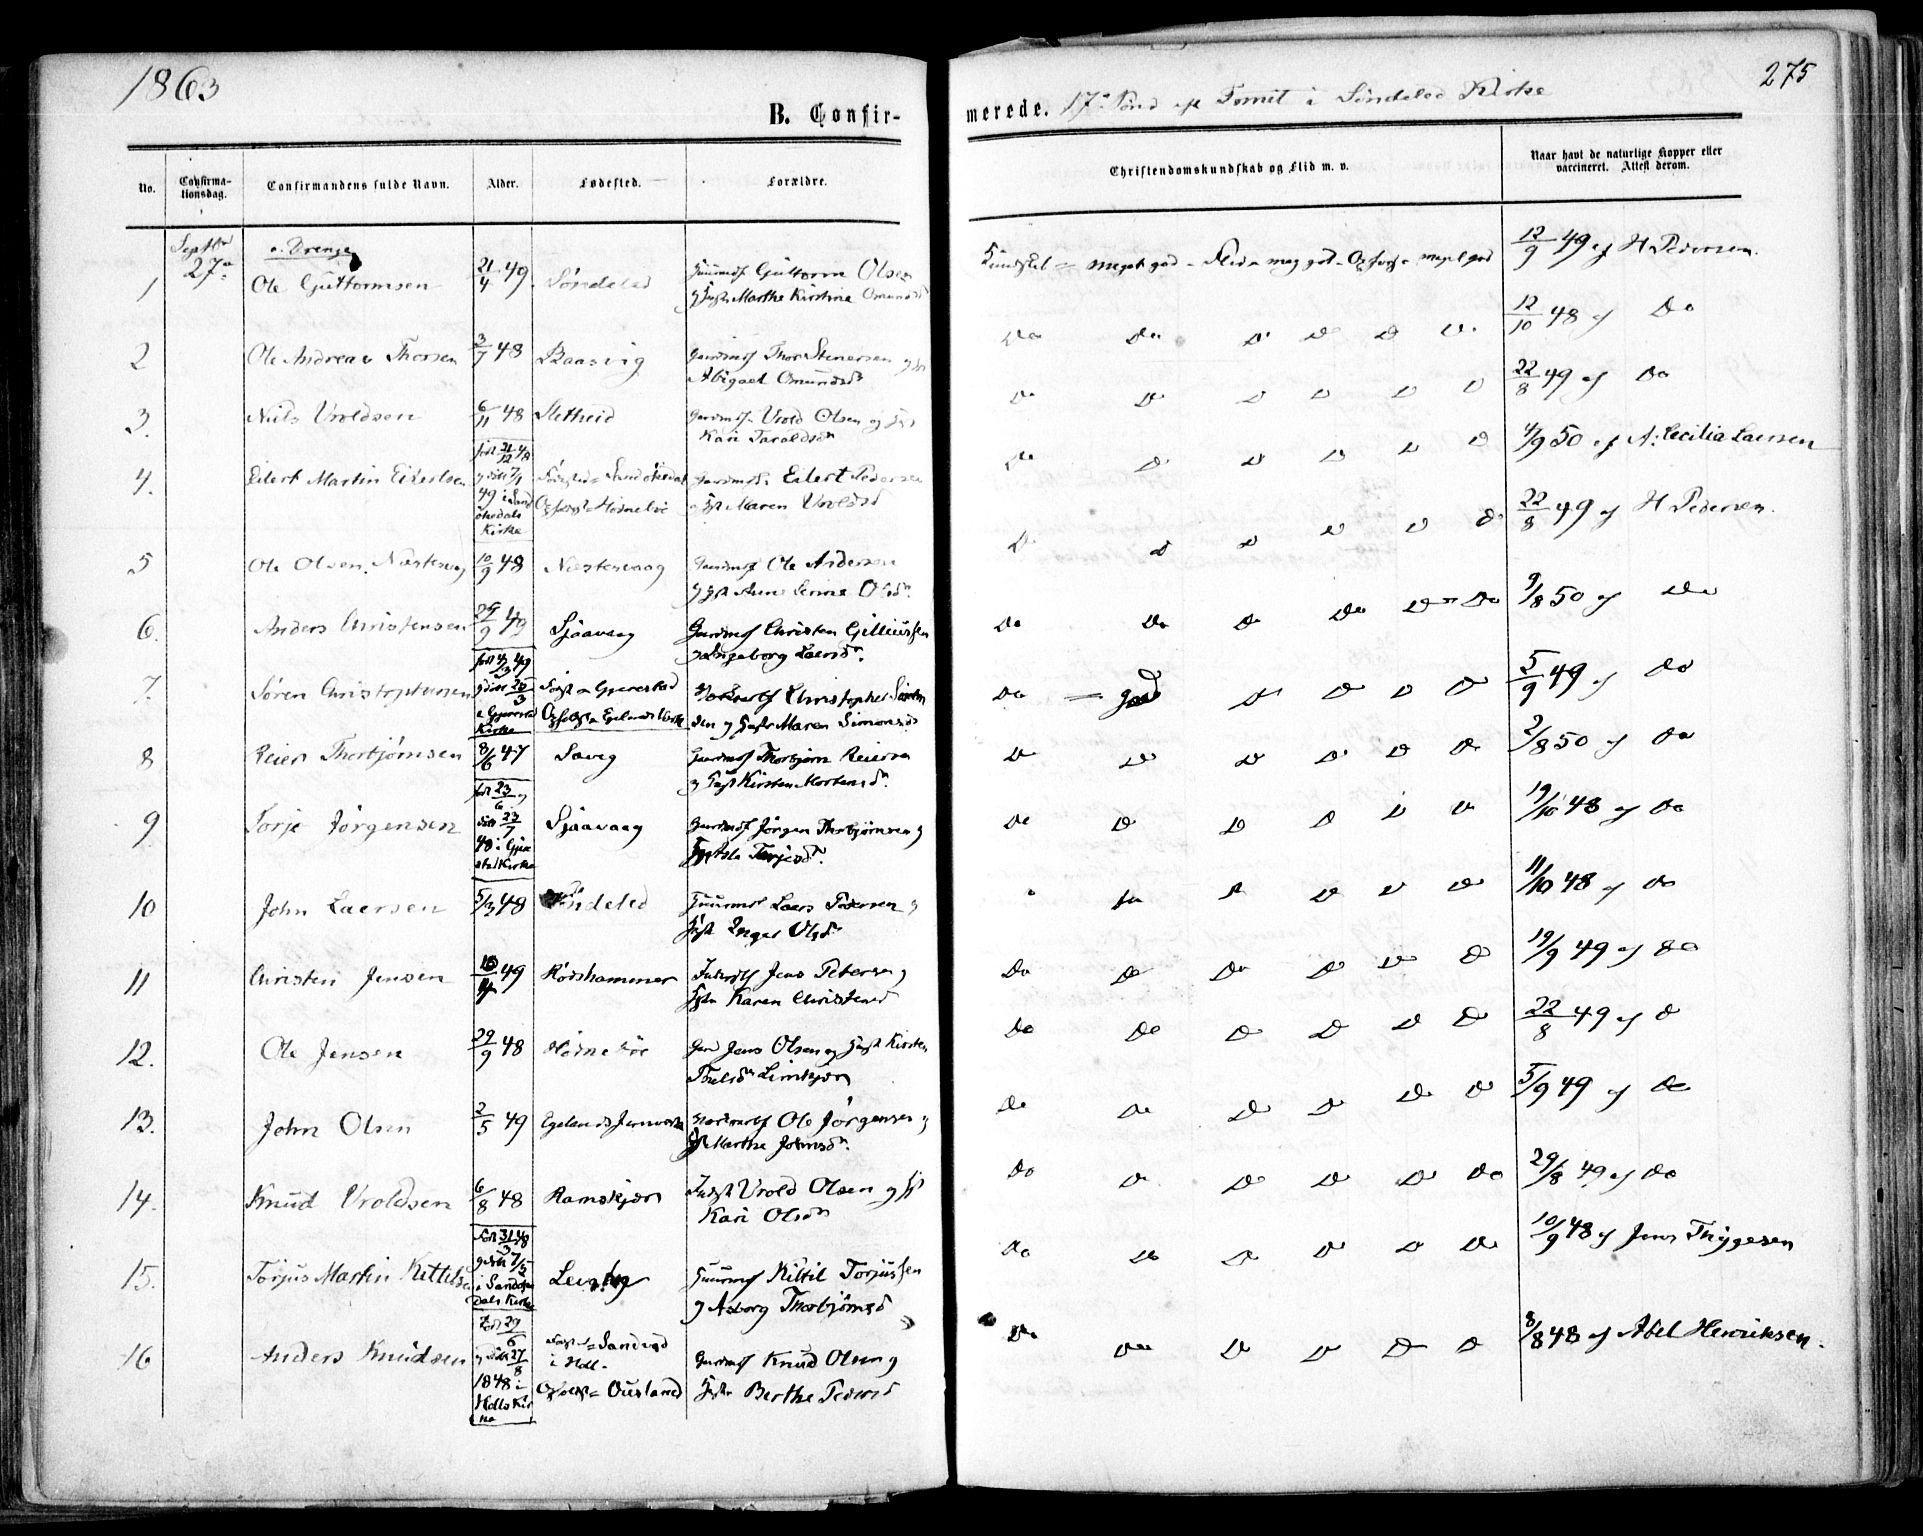 1863
275
B. Confirmerede. 17de Sönd eft Trinit i Söndeled Kirke
No. Confirmationsdag. Confirmandens fulde Navn. Alder. Fødested. Forældre. Christendomskundskab og Flid m. v. Naar havt de naturlige Kopper eller vaccineret. Attest derom.
Septbr 27de a. Drenge
1 Ole Guttormsen 21/4 49 Söndeled Guttorm Olsen
Marthe Kirstine Omundsd
Kundskab = meget god - Flid = meg god - Opførs = meget god 12/9 49 af H Pedersen
2 Ole Andreas Thorsen 3/7 48 Baasvig Gaardmd Thor Stenersen og
Abigael Omundsdr
Do Do Do Do Do Do 12/10 48 af Do
3. Niels Vroldsen 6/11 48 Sletheid Gaardmd Vrold Olsen og
Kari Taraldsdr
Do Do Do Do Do Do 22/8 49 af Do
4. Eilert Martin Eilertsen født 21/12 48
og döbt 7/1
49 i Sand
økedals
Kirke
Födested = Sandökedal
Opfost = Hödnebö
Gaardmd Eilert Pedersen
Maren Vroldsd
Do Do Do Do Do Do 4/9 50 af A: Cecilia Laersen
5 Ole Olsen Næstesvag 10/9 48 Næstesvaag Gaardmd Ole Andersen
og Anne Olsdr
Do Do Do Do Do Do 22/8 49 af H Pedersen.
6. Anders Christensen 29/9 49 Sjaavaag Gaardmd Christen Gjelliussen
og Ingeborg Laersdr.
Do Do Do Do Do Do 9/8 50 af Do
7. Søren Christophersen født 4/3 49
og döbt 25/3
i Gjerrestad
Kirke
Födest = Gjerrestad
Opfost = Egelands
Christopher
og Maren Simonsd
Do = god Do Do Do Do 5/9 49 af Do
8 Reier Thorbjörnsen 8/6 47 Savig Gaardmd Thorbjörn Reiersen
og Kirsten Mortensdr.
Do Do Do Do Do Do 2/8 50 af Do
9. Torje Jörgensen født 23/6 og
döbt 23/7
48 i Gjerre
stad Kirke
Sjaavaag Gaardmd Jörgen Thorbjörnsen og
Torjesdr.
Do Do Do Do Do Do 19/10 48 af Do
10 John Laersen 5/3 48 Söndeled Laers Pedersen og
Inger Olsdr
Do Do Do Do Do 11/10 48 af Do
11 Christen Jensen 49 Rödshammer Jens Petersen og
Karen Christensd
Do Do Do Do Do Do 19/9 49 af Do
12. Ole Jensen 29/9 48 Hödnebö Jens Olsen og Kirsten
Do Do Do Do Do Do 22/8 49 af Do
13. John Olsen 2/5 49 Egelands Jernværk Ole Jörgensen og
Marthe Johnsdr.
Do Do Do Do Do Do 5/9 49 af Do
14. Knud Vroldsen 6/8 48 Ramskjær Vrold Olsen og
Kari Olsdr
Do Do Do Do Do Do 29/8 49 af Do
15. Torjus Martin Kittelsen født 31/3 48
og döbt 7/5
i Sandöke
dals Kirke
Kittil Torjussen
og Asborg Thorbjörnsd
Do Do Do Do Do Do 10/9 48 af Jens Thygesen
16 Anders Knudsen Född 29/6
og döbt 27/8
1848 i
Holls Kir
ke
Födst = Sandvad
i Holl.
Opfost = Ousland
Gaardmd Knud Olsen og
Berthe Pedersd
Do Do Do Do Do Do 8/8 48 af Abel Henriksen.